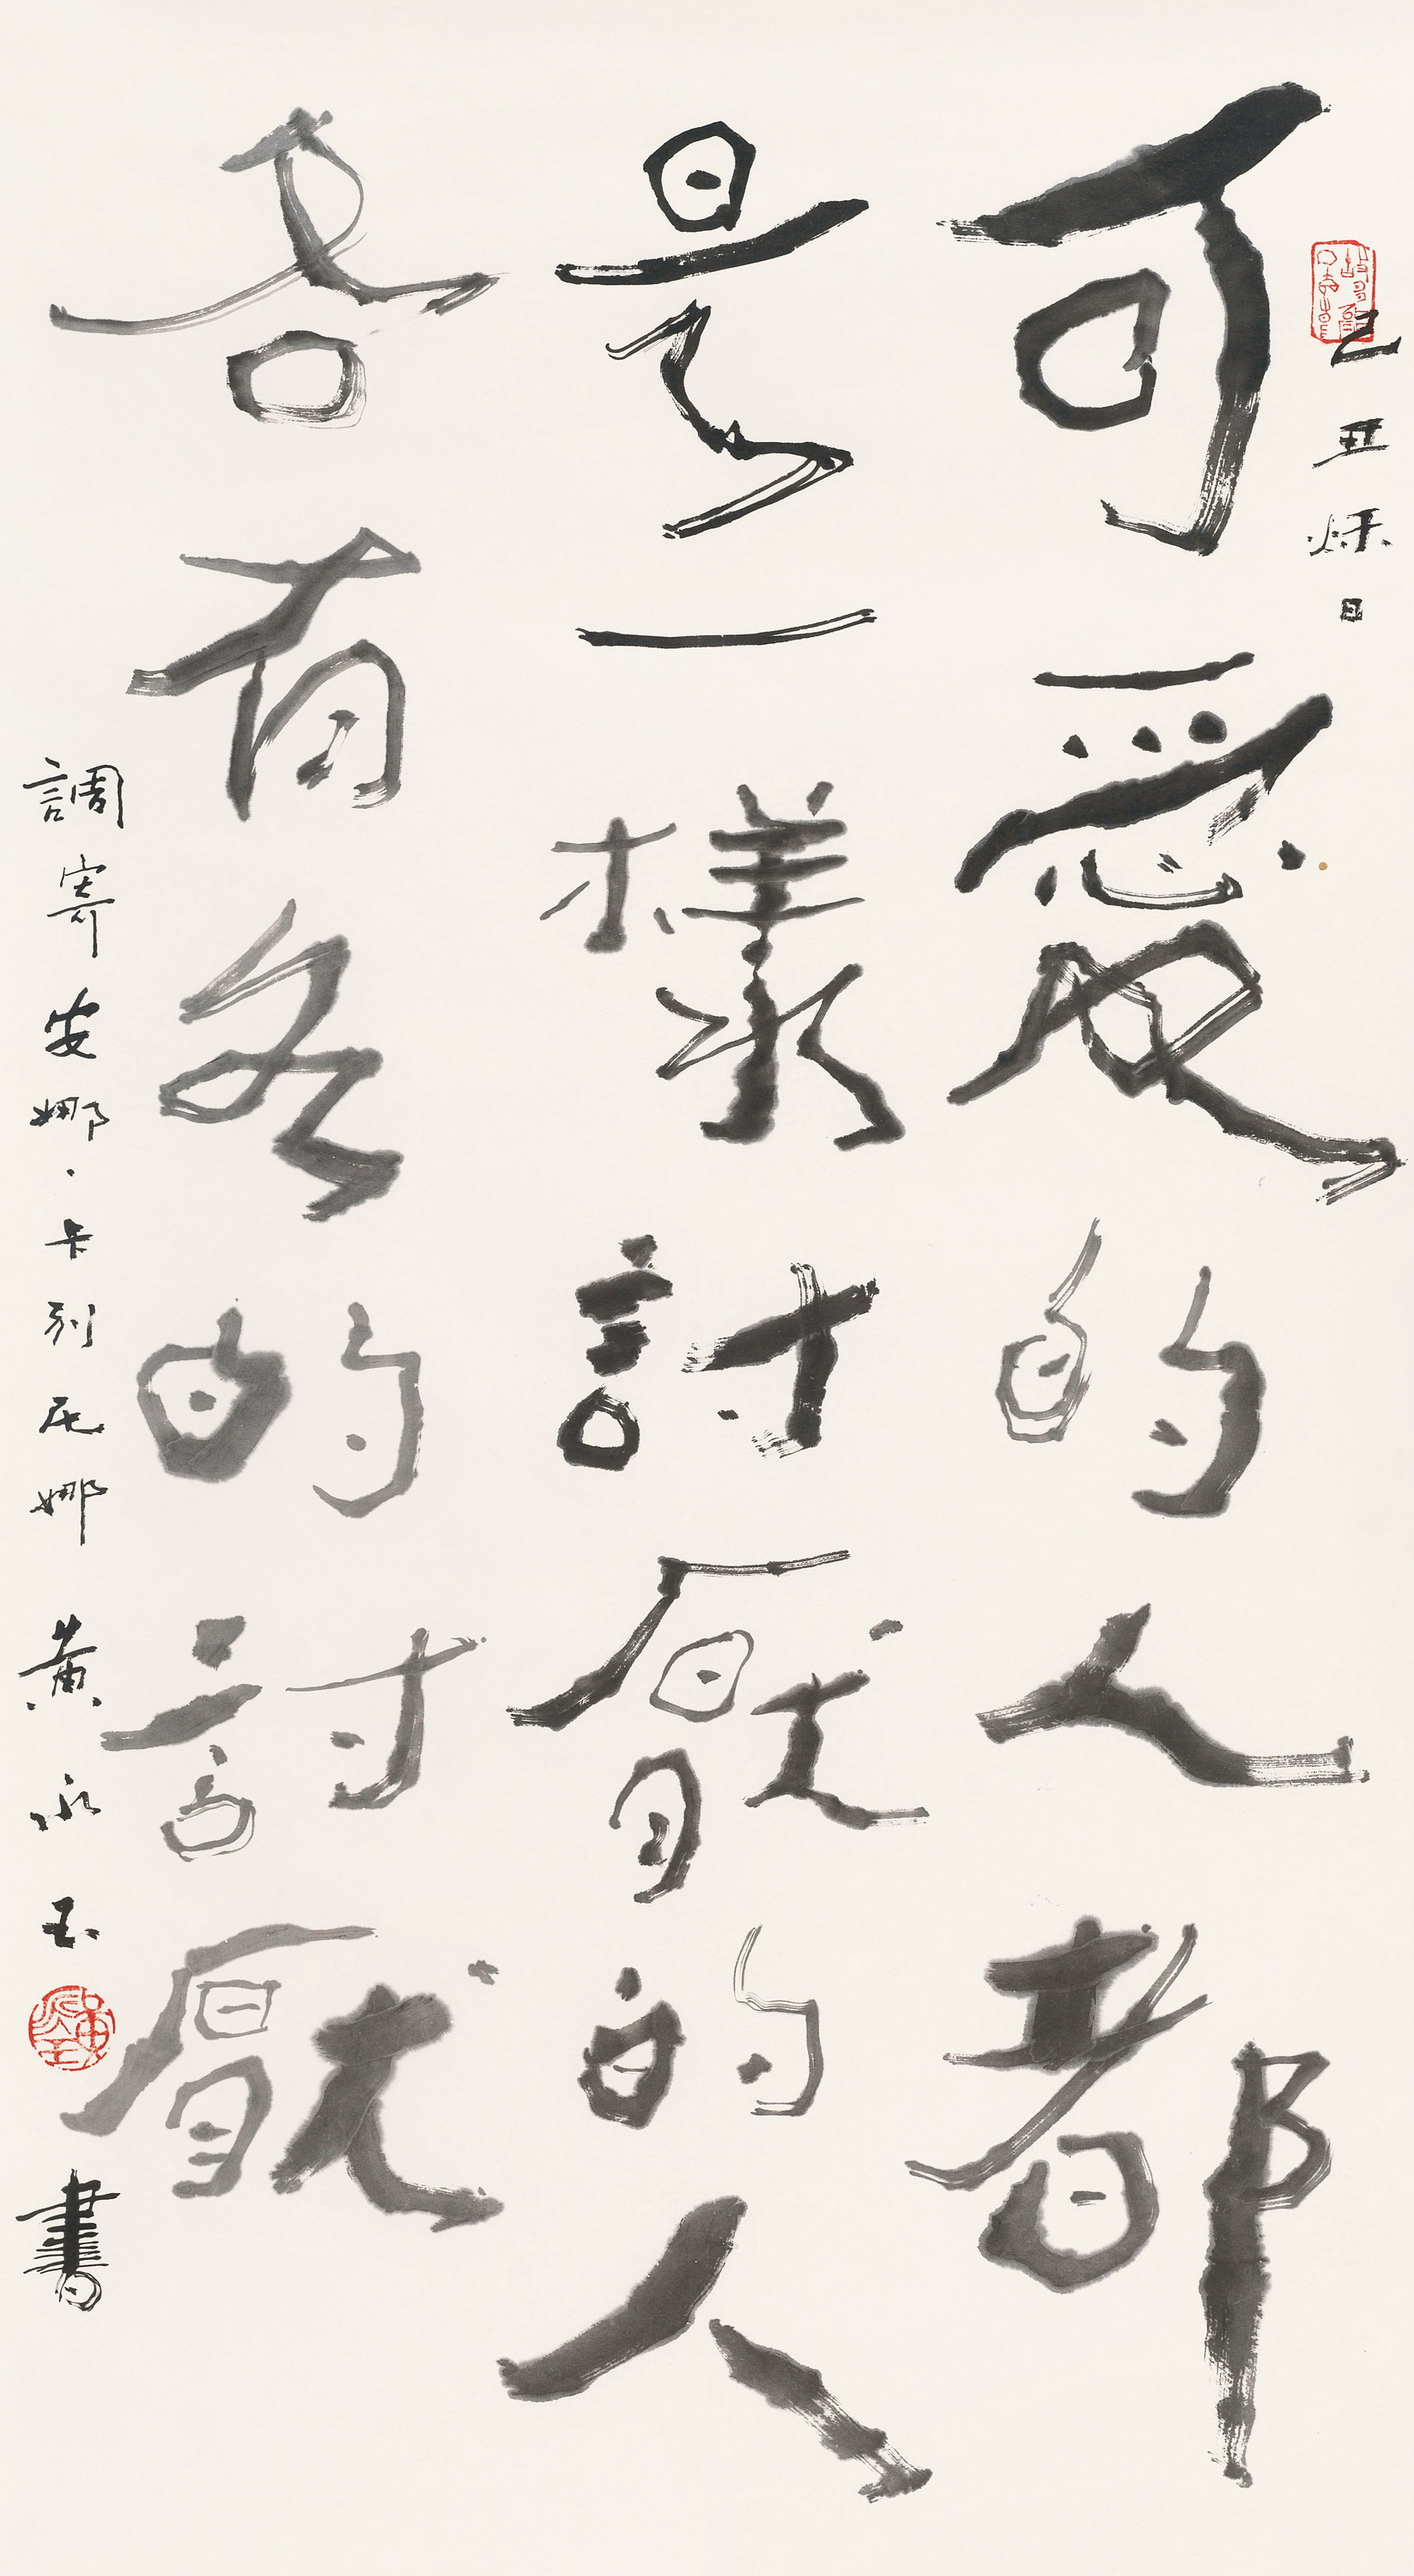 己丑秌日
可愛的人都
是一樣討厭的人
各有各的討厭
調寄安娜·卡列尼娜 黃永玉 書
黃永玉